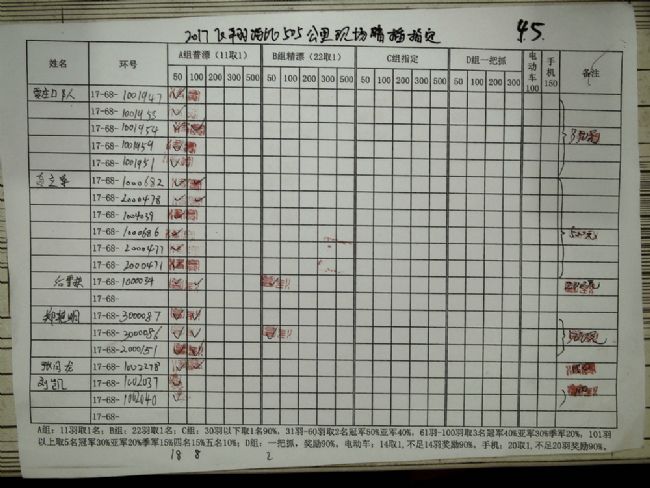 2017 505公里现场 指定 45.
姓名 环号 A组普漂 (11取1) B组精漂 (22取1) C组指定 D组一把抓 电动车100 手机150 备注
50 100 200 300 500 50 100 200 300 500 50 100 200 300 500 50 100 200 300 500
17-68-1001947
17-68-1001953
17-68-1001954
17-68-1001959
17-68-1001951
17-68-1000682
17-68-2000478
17-68-1004039
17-68-1000686
17-68-2000477
17-68-2000471
17-68-1000034
17-68-
郑艳明 17-68-3000087
17-68-3000086
17-68-2000151
17-68-1002278
刘凯 17-68-1002037
17-68-1002040
17-68-
A组：11羽取1名；B组：22羽取1名；C组：30羽以下取1名90%，31羽-60羽取2名冠军50%亚军40%，61羽-100羽取3名冠军40%亚军30%季军20%，101羽
以上取5名冠军30%亚军20%季军15%四名15%五名10%；D组：一把抓，奖励90%，电动车：14取1，不足14羽奖励90%，手机：20取1，不足20羽奖励90%。
18 8 2